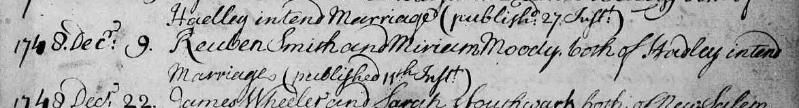 Hadley intend Marriage (publishd. 27 Inst.)
1748. Decr. 9. Reuben Smith and Miriam Moody, both of Hadley intend
Marriage (published 11th Inst.)
1748 Decr. 22. James Wheeler and Sarah Southwark both of New Salem